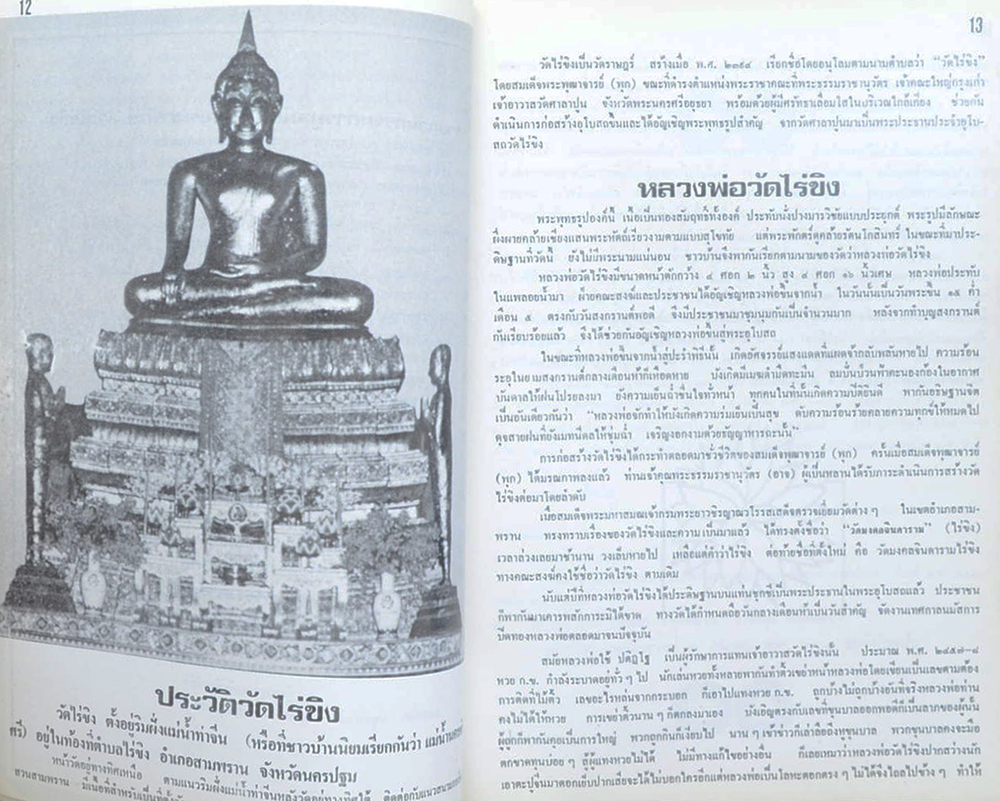 12
ประวัติวัดไร่ขิง
วัดไร่ขิง ตั้งอยู่ริมฝั่งแม่น้ำท่าจีน (หรือที่ชาวบ้านนิยมเรียกกันว่า แม่น้ำนคร
ศรี) อยู่ในท้องที่ตำบลไร่ขิง อำเภอสามพราน จังหวัดนครปฐม
หน้าวัดอยู่ทางทิศเหนือ ตามแนวริมฝั่งแม่น้ำท่าจีนหลังวัดอยู่ทางทิศใต้ ติดต่อกับแนวสนาม
สวนสามพราน
13
วัดไร่ขิงเป็นวัดราษฎร์ สร้างเมื่อ พ.ศ. ๒๓๙๔ เรียกชื่อโดยอนุโลมตามนามตำบลว่า "วัดไร่ขิง"
โดยสมเด็จพระพุฒาจารย์ (พุก) ขณะที่ดำรงตำแหน่งพระราชาคณะที่พระธรรมราชานุวัตร เจ้าคณะใหญ่กรุงเก่า
เจ้าอาวาสวัดศาลาปูน จังหวัดพระนครศรีอยุธยา พร้อมด้วยผู้มีศรัทธาเลื่อมใสในบริเวณใกล้เคียง ช่วยกัน
ดำเนินการก่อสร้างอุโบสถขึ้นและได้อัญเชิญพระพุทธรูปสำคัญ จากวัดศาลาปูนมาเป็นพระประธานประจำอุโบ-
สถวัดไร่ขิง
หลวงพ่อวัดไร่ขิง
พระพุทธรูปองค์นี้ เนื้อเป็นทองสัมฤทธิ์ทั้งองค์ ประทับนั่งปางมารวิชัยแบบประยุกต์ พระรูปมีลักษณะ
ผึ่งผายคล้ายเชียงแสนพระหัตถ์เรียวงามตามแบบสุโขทัย แต่พระพักตร์ดูคล้ายรัตนโกสินทร์ ในขณะที่มาประ-
ดิษฐานที่วัดนี้ ยังไม่มีพระนามแน่นอน ชาวบ้านจึงพากันเรียกตามนามของวัดว่าหลวงพ่อวัดไร่ขิง
หลวงพ่อวัดไร่ขิงมีขนาดหน้าตักกว้าง ๔ ศอก ๒ นิ้ว สูง ๔ ศอก ๑๖ นิ้วเศษ หลวงพ่อประทับ
ในแพลอยน้ำมา ฝ่ายคณะสงฆ์และประชาชนได้อัญเชิญหลวงพ่อขึ้นจากน้ำ ในวันนั้นเป็นวันพระขึ้น ๑๕ ค่ำ
เดือน ๕ ตรงกับวันสงกรานต์พอดี จึงมีประชาชนมาชุมนุมกันเป็นจำนวนมาก หลังจากทำบุญสงกรานต์
กันเรียบร้อยแล้ว จึงได้ช่วยกันอัญเชิญหลวงพ่อขึ้นสู่พระอุโบสถ
ในขณะที่หลวงพ่อขึ้นจากน้ำสู่ปะรำพิธีนั้น เกิดอัศจรรย์แสงแดดที่แผดจ้ากลับพลันหายไป ความร้อน
ระอุในยามสงกรานต์กลางเดือนห้าก็เหือดหาย บังเกิดมีเมฆดำมืดทะมึน ลมปั่นป่วนฟ้าคะนองก้องในอากาศ
บันดาลให้ฝนโปรยลงมา ยังความเย็นฉ่ำชื่นใจทั่วหน้า ทุกคนในที่นั้นเกิดความปีติยินดี พากันอธิษฐานจิต
เป็นอันเดียวกันว่า "หลวงพ่อจักทำให้บังเกิดความร่มเย็นเป็นสุข ดับความร้อนร้ายคลายความทุกข์ให้หมดไป
ดุจสายฝนที่ยังเมทนีดลให้ชุ่มฉ่ำ เจริญงอกงามด้วยธัญญาหารฉะนั้น"
การก่อสร้างวัดไร่ขิงได้กระทำตลอดมาชั่วชีวิตของสมเด็จพุฒาจารย์ (พุก) ครั้นเมื่อสมเด็จพุฒาจารย์
(พุก) ได้มรณภาพลงแล้ว ท่านเจ้าคุณพระธรรมราชานุวัตร (อาจ) ผู้เป็นหลานได้รับภาระดำเนินการสร้างวัด
ไร่ขิงต่อมาโดยลำดับ
เมื่อสมเด็จพระมหาสมณเจ้ากรมพระยาวชิรญาณวโรรสเสด็จตรวจเยี่ยมวัดต่าง ๆ ในเขตอำเภอสาม-
พราน ทรงทราบเรื่องของวัดไร่ขิงและความเป็นมาแล้ว ได้ทรงตั้งชื่อว่า "วัดมงคลจินดาราม" (ไร่ขิง)
เวลาล่วงเลยมาช้านาน วงเล็บหายไป เหลือแต่คำว่าไร่ขิง ต่อท้ายชื่อที่ตั้งใหม่ คือ วัดมงคลจินดารามไร่ขิง
ทางคณะสงฆ์คงใช้ชื่อว่าวัดไร่ขิง ตามเดิม
นับแต่ปีที่หลวงพ่อวัดไร่ขิงได้ประดิษฐานบนแท่นชุกชีเป็นพระประธานในพระอุโบสถแล้ว ประชาชน
ก็พากันมาเคารพสักการะมิได้ขาด ทางวัดได้กำหนดถือวันกลางเดือนห้าเป็นวันสำคัญ จัดงานเทศกาลนมัสการ
ปิดทองหลวงพ่อตลอดมาจนปัจจุบัน
สมัยหลวงพ่อใช้ ปติฏโฐ เป็นผู้รักษาการแทนเจ้าอาวาสวัดไร่ขิงนั้น ประมาณ พ.ศ. ๒๔๕๗-๘
หวย ก.ข. กำลังระบาดอยู่ทั่ว ๆ ไป นักเล่นหวยทั้งหลายพากันทำติ้วเขย่าหน้าหลวงพ่อโดยเขียนเป็นเลขตามต้อง
การติดที่ไม้ติ้ว เลขอะไรหล่นจากกระบอก ก็เอาไปแทงหวย ก.ข. ถูกบ้างไม่ถูกบ้างอันที่จริงหลวงพ่อท่าน
คงไม่ได้ให้หวย การเขย่าติ้วนาน ๆ ก็ตกลงมาเอง บังเอิญตรงกับเลขที่ขุนบาลออกพอดีก็เป็นลาภของผู้นั้น
ผู้ถูกก็พากันคุยเป็นการใหญ่ พวกถูกกินก็เงียบไป นาน ๆ เข้าข่าวก็เล่าลือถึงหูขุนบาล พวกขุนบาลคงจะมือ
ตกขาดทุนบ่อย ๆ สู้ผู้แทงหวยไม่ได้ ไม่มีทางแก้ไขอย่างอื่น ก็เลยเหมาว่าหลวงพ่อวัดไร่ขิงปากสว่างนัก
เอาตะปูจีนมาตอกเย็บปากเสียจะได้ไม่บอกใครอีกแต่หลวงพ่อเป็นโลหะตอกตรง ๆ ไม่ได้จึงไถลไปข้าง ๆ ทำให้